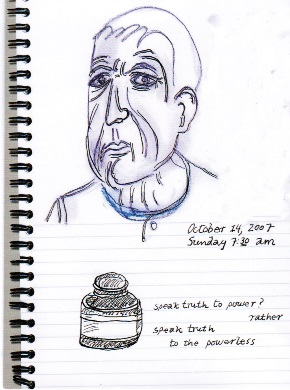 October 14, 2007
Sunday 7:30 am
speak truth to power?
rather
speak truth
to the powerless